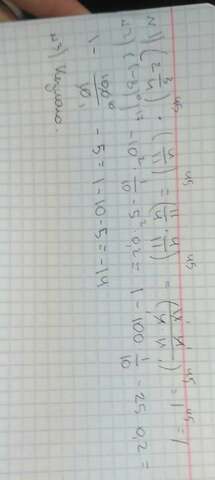 N1) (2 3/4)^45 · (4/11)^45 = (11/4 · 4/11)^45 = (11 · 4 / 4 · 11)^45 = 1^45 = 1
N2) ((-8)^0)^12 - 10^2 · 1/10 - 5^2 · 0,2 = 1 - 100 1/10 - 25 · 0,2 =
1 - 100/10 - 5 = 1 - 10 - 5 = -14
N3)